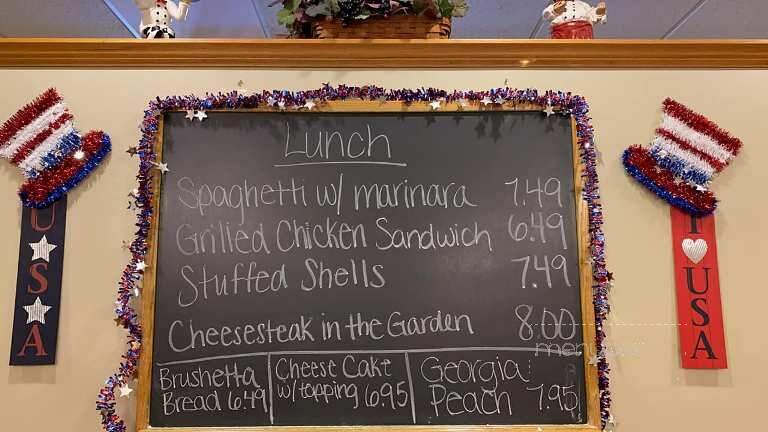 Lunch
Spaghetti w/ marinara 7.49
Grilled Chicken Sandwich 6.49
Stuffed Shells 7.49
Cheesesteak in the Garden 8.00
Brushetta
Bread 6.49
Cheese Cake
w/topping 6.95
Georgia
Peach 7.95
USA
I USA